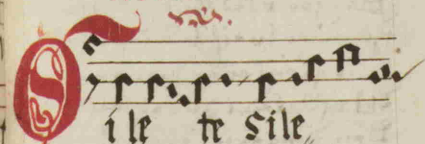 Silete Sile